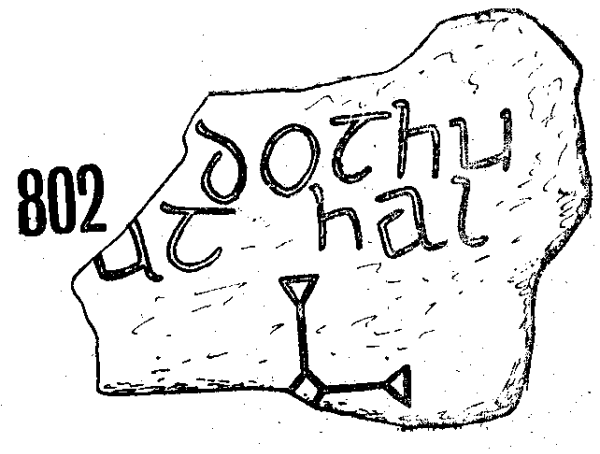 802
dothu
at hal